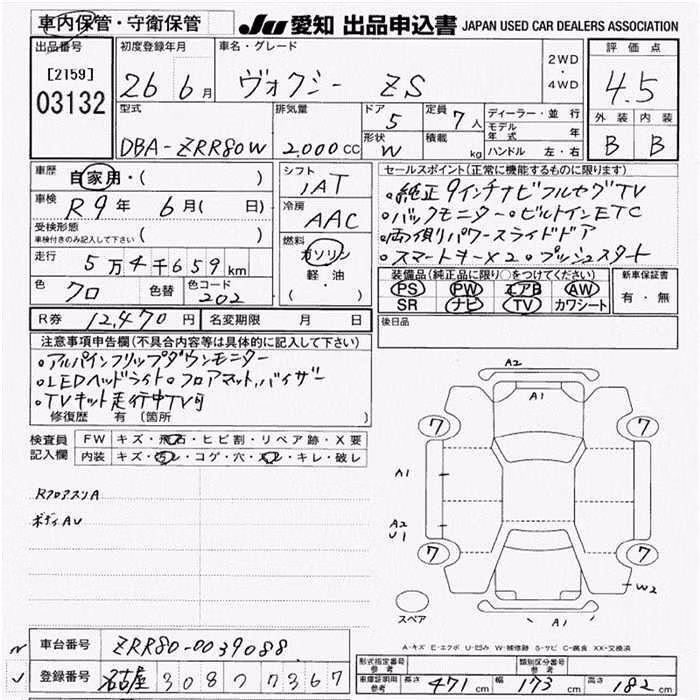 車内保管・守衛保管
JU 愛知 出品申込書 JAPAN USED CAR DEALERS ASSOCIATION
出品番号
[2159]
03132
初度登録年月
26 6月
車名・グレード
ヴォクシー ZS
2WD
・
4WD
評価点
4.5
外装 内装
B B
型式
DBA-ZRR80W
排気量
2.000CC
ドア
5
形状
W
定員
7人
積載
kg
ディーラー・並行
モデル年式 年
ハンドル 左・右
車歴
自家用・( )
車検
R9年 6月( 日)
受検形態
車検付きのみ記入して下さい ( )
走行
5万4千659km
色
クロ
色替
色コード
202
シフト
IAT
冷房
AAC
燃料
ガソリン
軽・油
( ・ )
セールスポイント(正常に機能するものに限ります)
・純正9インチナビフルセグTV
・バックモニター・ビルトインETC
・両側パワースライドドア
・スマートキーX2・プッシュスタート
装備品(純正品に限り○をつけてください)
PS PW エアB AW
SR ナビ TV カワシート
新車保証書
有・無
後日品
R券 12,470円
名変期限 月 日
注意事項申告欄(不具合内容等は具体的に記入して下さい)
・アルパインフリップダウンモニター
・LEDヘッドライト・フロアマット,バイザー
・TVキット走行中TV可
修復歴 有 〔箇所 〕
検査員
記入欄
FW キズ・飛石・ヒビ割・リペア跡・X要
内装 キズ・汚レ・コゲ・穴・スレ・キレ・破レ
RフロアスリA
ボディAU
A2
A1
7 7
A1
A2
U1
7 7
W2
A1
スペア
A-キズ E-エクボ U-凹み W-補修跡 S-サビ C-腐食 XX-交換済
車台番号 ZRR80-0039088
登録番号 名古屋 308 ワ 7367
型式指定番号
参考
類別区分番号
参考
車庫証明用
参考
長さ 471cm 幅 173cm 高さ 182cm